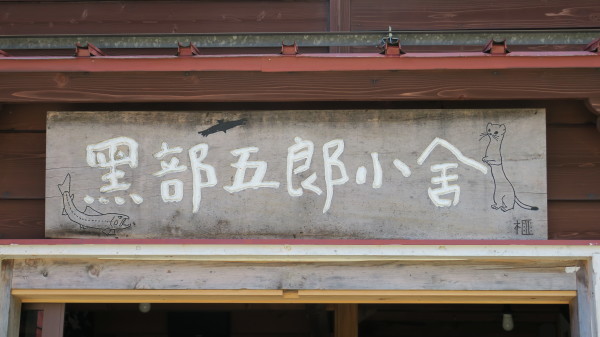 黒部五郎小舎